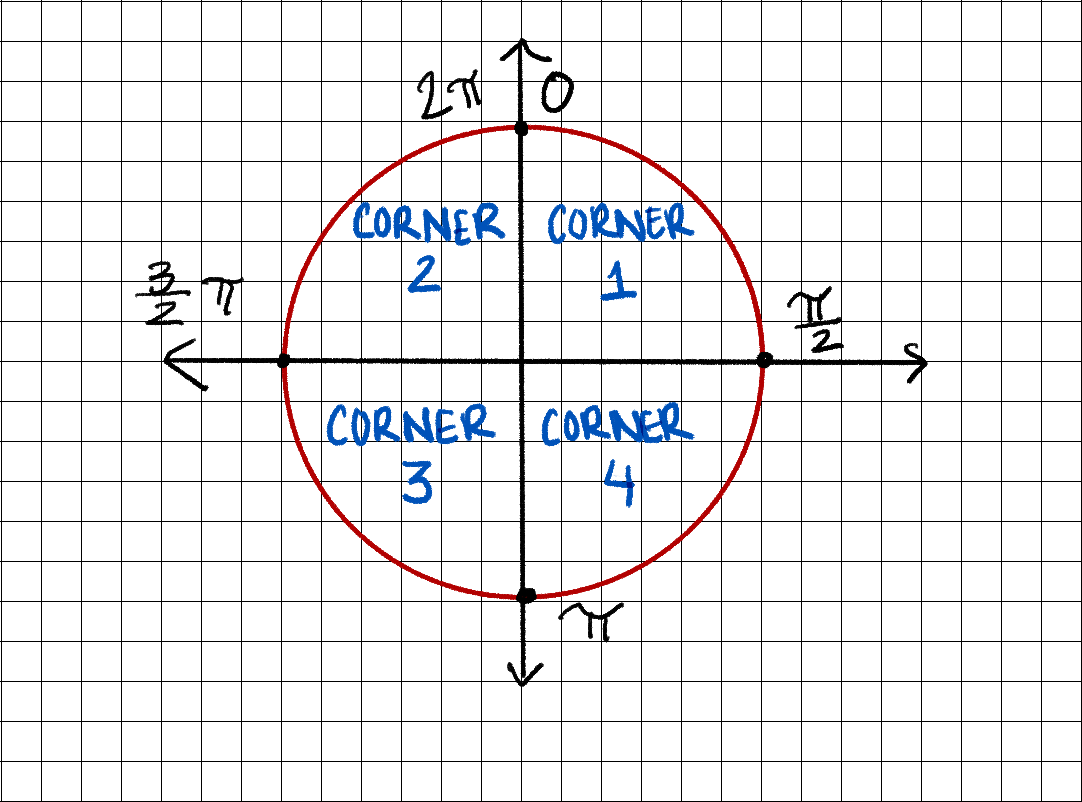 2π 0
CORNER CORNER
2 1
3/2 π π/2
CORNER CORNER
3 4
π